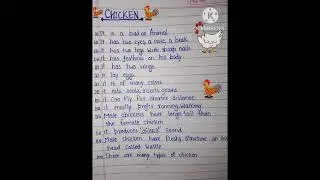 CHICKEN
It is a bird or Animal
It has two eyes, a nose, a beak
It has two legs with sharp nails
It has feathers on his body
It has two wings
It lay eggs
It is of many colors
It eats seeds, insects, grains
It can fly for shorter distance
It mostly prefer running, walking
Male chickens have longer tail than
the female chicken
It produces "Cluck" sound
Male chicken have fleshy structure on
head called Wattle
There are many types of chicken